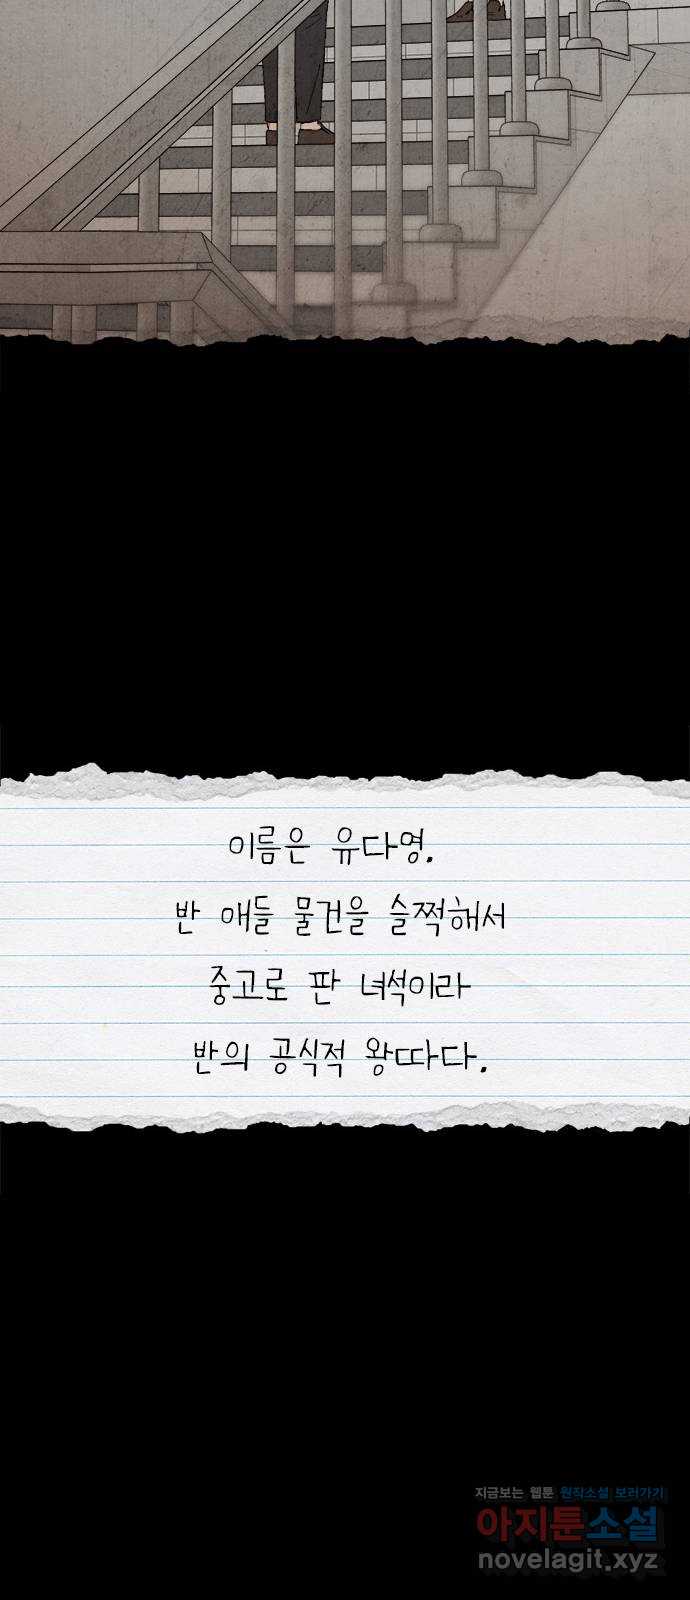 이름은 유다영.
반 애들 물건을 슬쩍해서
중고로 판 녀석이라
반의 공식적 왕따다.
지금보는 웹툰 원작소설 보러가기
아지툰소설
novelagit.xyz